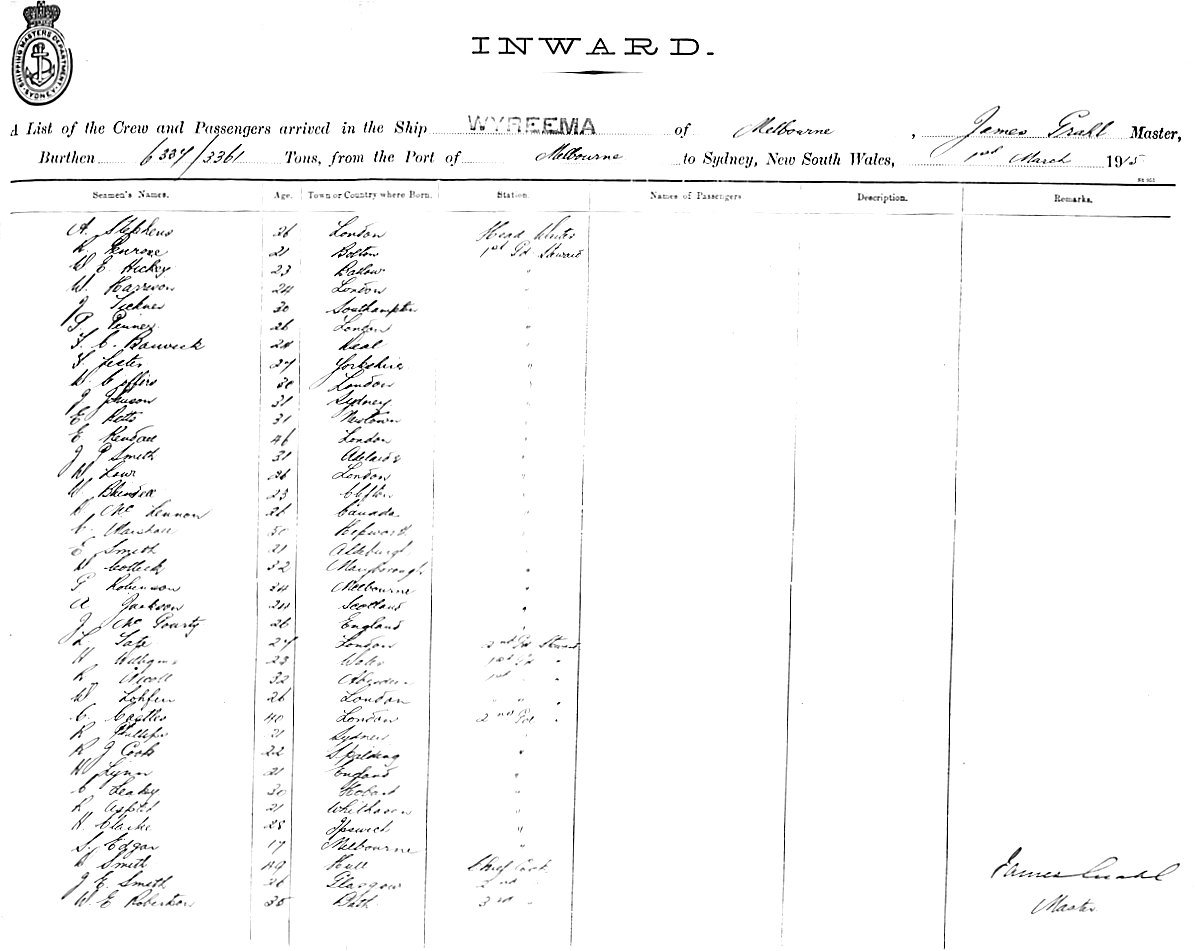 SHIPPING MASTERS DEPARTMENT SYDNEY
INWARD.
A List of the Crew and Passengers arrived in the Ship WYREEMA of Melbourne, James Grahl Master,
Burthen 6337/3361 Tons, from the Port of Melbourne to Sydney, New South Wales, 1st March 1915
Seamen's Names. Age. Town or Country where Born. Station. Names of Passengers Description. Remarks.
A. Stephens 26 London Head Waiter
R. Penrose 21 Bolton 1st Gd Steward
W E Hickey 23 "
W. Harrison 24 London "
J 30 Southampton "
P 26 London "
F. C. 24 "
F 27 Yorkshire "
W. 30 London "
J Johnson 31 Sydney "
E Betts 31 Newtown "
E Kendall 46 London "
J P Smith 31 Adelaide "
W. 26 London "
W 23 Clifton "
Mc Lennon 26 Canada "
C. Marshall 50 Hepworth "
E Smith 21 Aldeburgh "
W 32 Maryborough "
P Robinson 34 Melbourne "
A Jackson 24 Scotland "
J Mc Gourty 26 England "
L Tate 27 London 2nd Gd Steward
H 23 Wales 1st Gd "
R Nicoll 32 Aberdeen 1st "
W 26 London " "
C. Castles 40 London 2nd Gd "
R Phillips 21 Sydney "
R J Cook 22 Spalding "
H Lynn 21 England "
C Leahy 30 Hobart "
R 21 Whithaven "
H. Clarke 28 Ipswich "
S. Edgar 17 Melbourne "
Smith 49 Hull Chief Cook
J E. Smith 26 Glasgow 2nd "
W. E Robertson 35 3rd "
James Grahl
Master